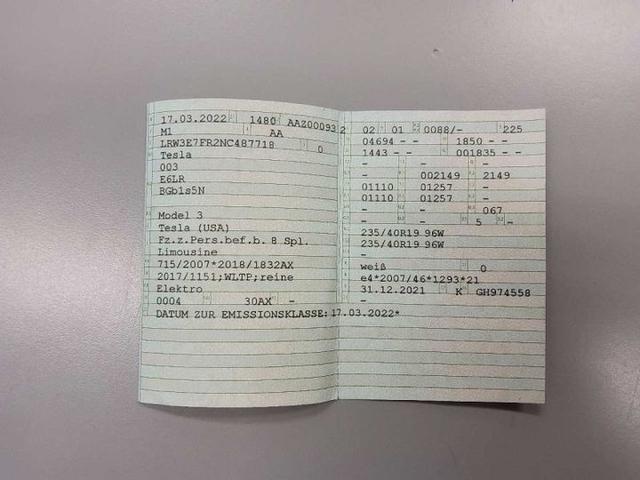 17.03.2022 1480 AAZ00093 2
M1 AA
LRW3E7FR2NC487718 0
Tesla
003
E6LR
BGb1s5N
Model 3
Tesla (USA)
Fz.z.Pers.bef.b. 8 Spl.
Limousine
715/2007*2018/1832AX
2017/1151;WLTP;reine
Elektro
0004 30AX -
DATUM ZUR EMISSIONSKLASSE:17.03.2022*
02 01 0088/- 225
04694 - - 1850 - -
1443 - - 001835 - -
- - -
- 002149 2149
01110 01257 -
01110 01257 -
- - 067
- - 5 -
235/40R19 96W
235/40R19 96W
-
weiß 0
e4*2007/46*1293*21
31.12.2021 K GH974558
-